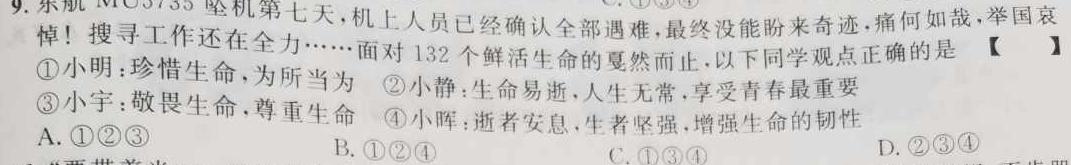 9. 东航 MU5735 坠机第七天,机上人员已经确认全部遇难,最终没能盼来奇迹,痛何如哉,举国哀
悼！搜寻工作还在全力……面对 132 个鲜活生命的戛然而止,以下同学观点正确的是 【 】
①小明:珍惜生命,为所当为 ②小静:生命易逝,人生无常,享受青春最重要
③小宇:敬畏生命,尊重生命 ④小晖:逝者安息,生者坚强,增强生命的韧性
A. ①②③ B. ①②④ C. ①③④ D. ②③④